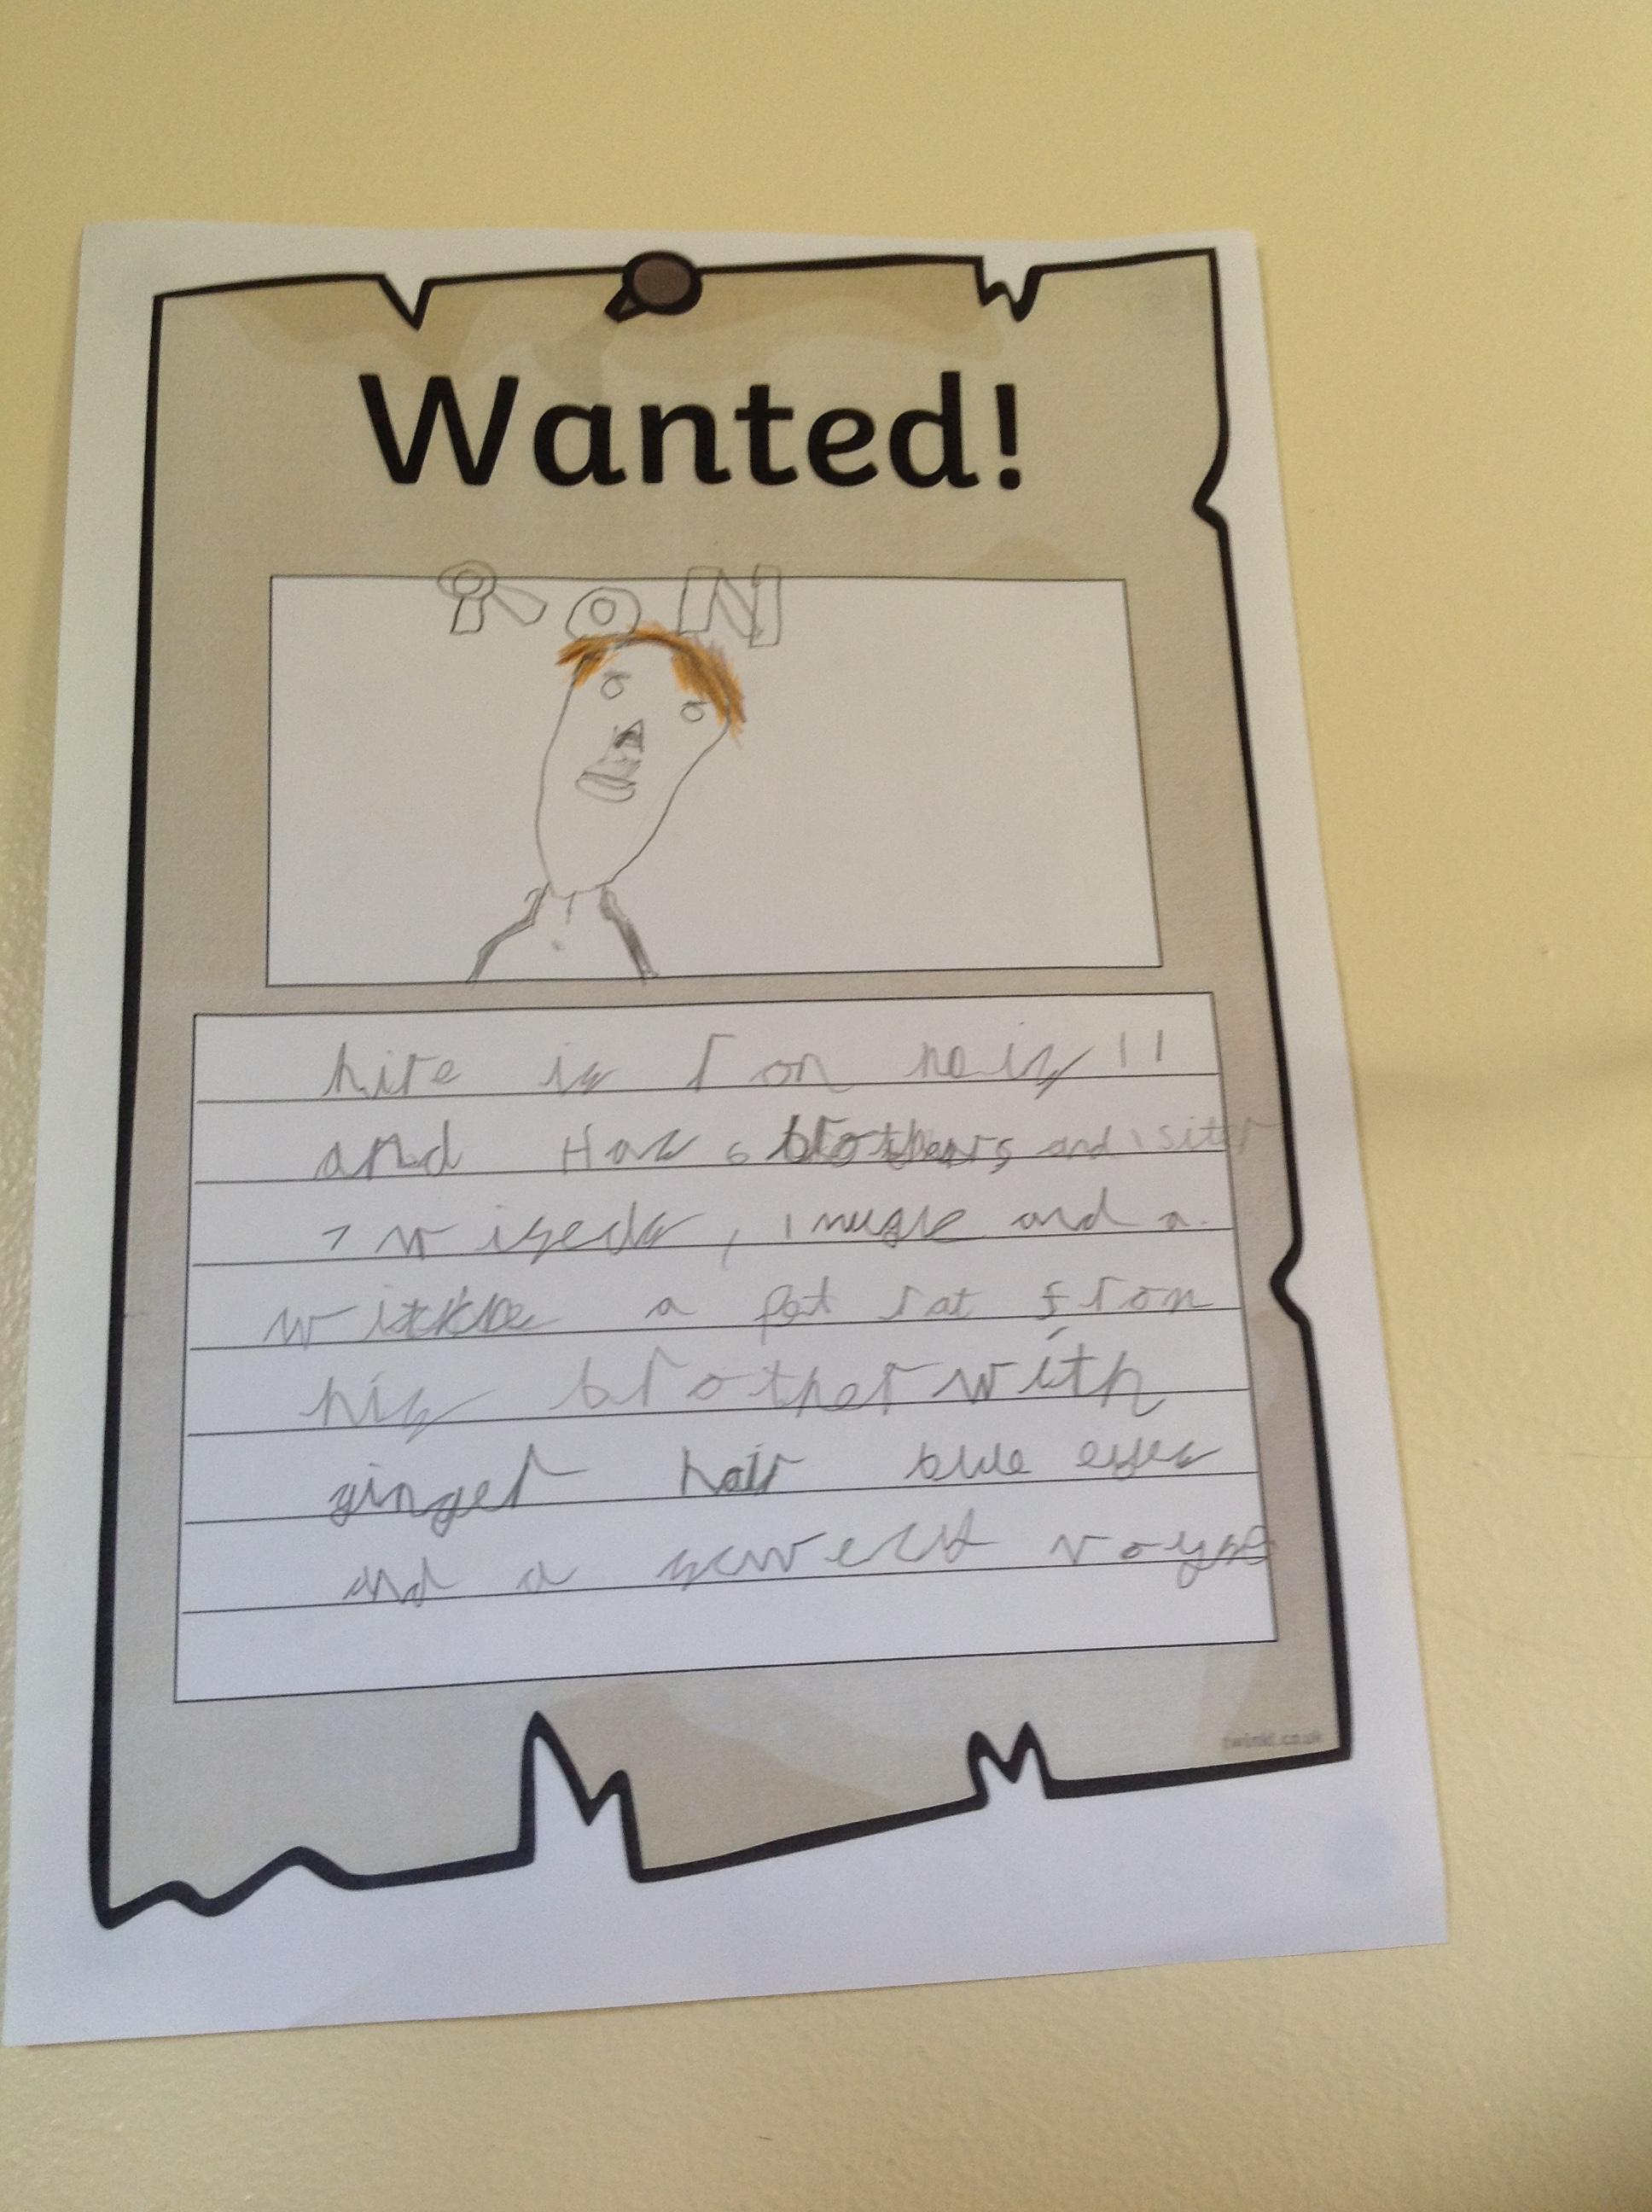 Wanted!
RoN
hire is ron he is 11
and Has 6 brothers and 1 sister
7 wiseds, 1 mugle and a
a pet rat from
his brother with
ginger hair blue eyes
and a voyse
twinkl.co.uk